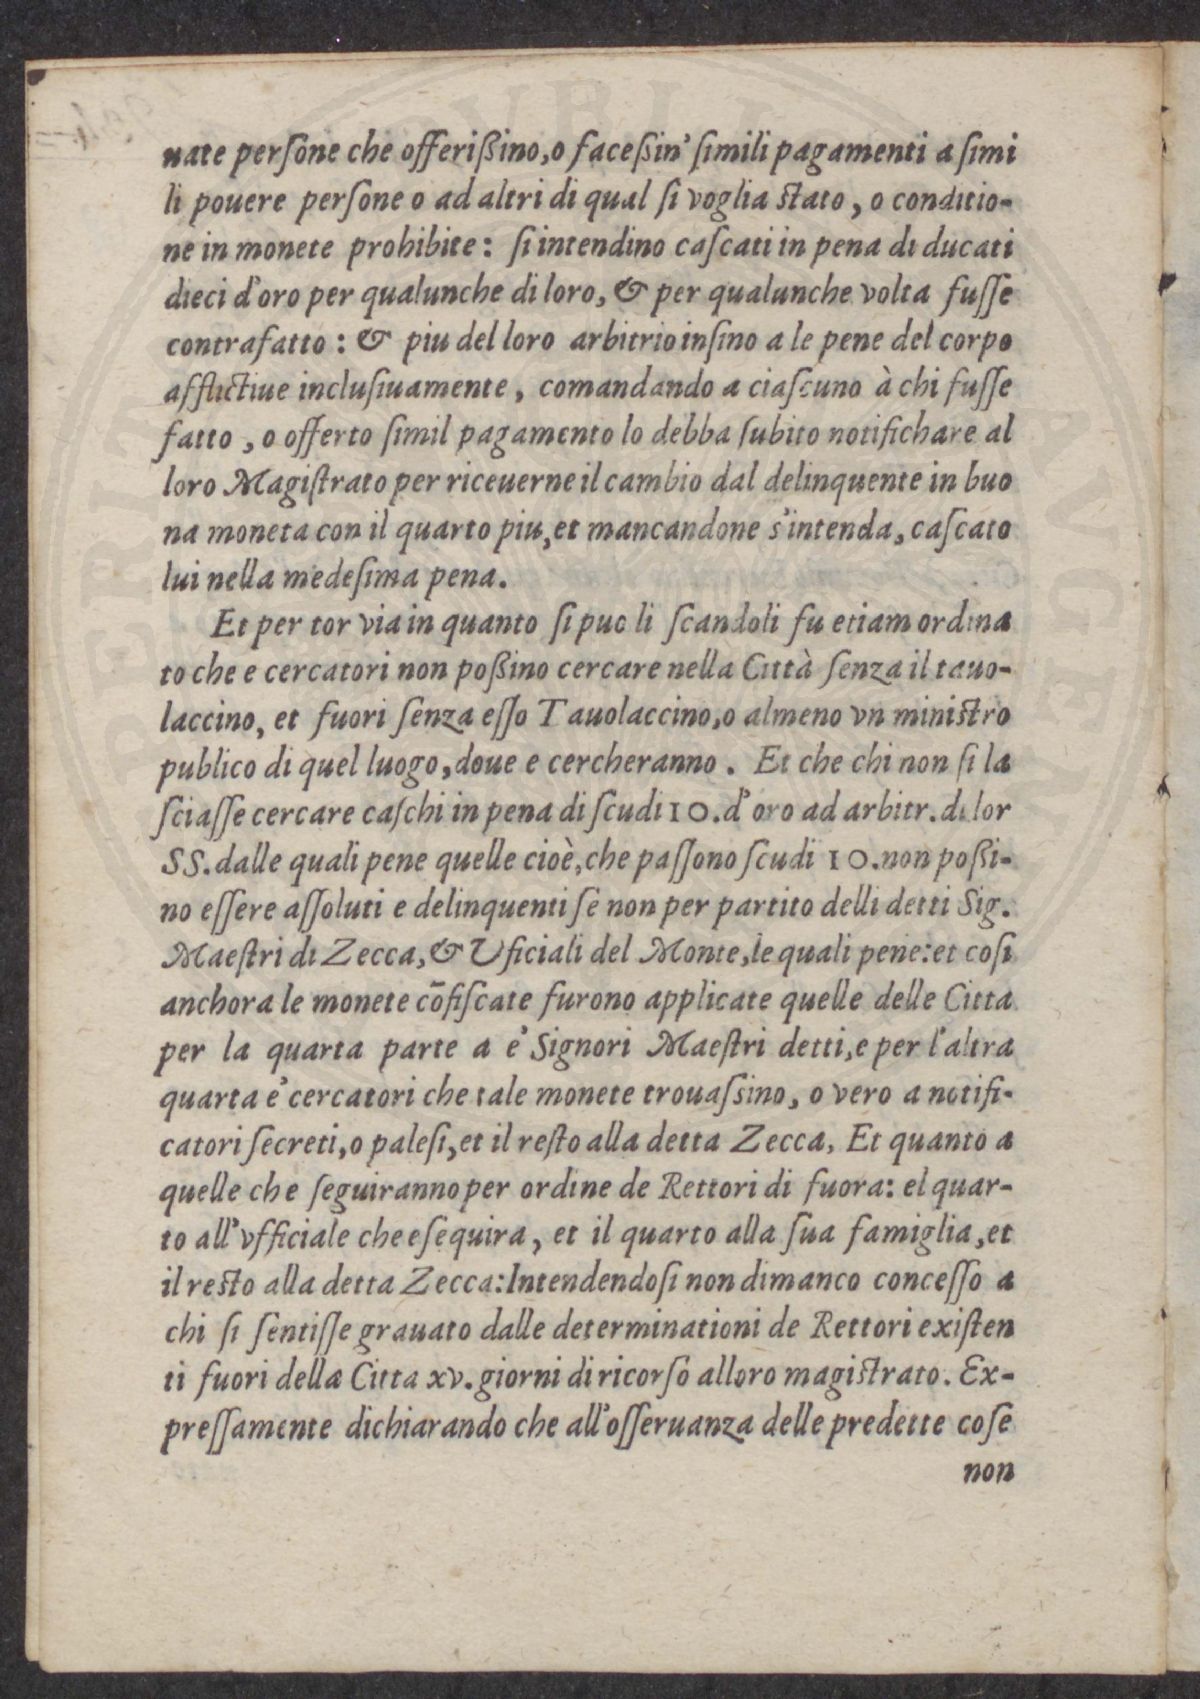 nate perſone che offerißino, o faceßin' ſimili pagamenti a ſimi
li pouere perſone o ad altri di qual ſi voglia ſtato, o conditio-
ne in monete prohibite: ſi intendino caſcati in pena di ducati
dieci d'oro per qualunche di loro, & per qualunche volta fuſſe
contrafatto: & piu del loro arbitrio inſino a le pene del corpo
afflictiue incluſiuamente, comandando a ciaſcuno à chi fuſſe
fatto, o offerto ſimil pagamento lo debba ſubito notifichare al
loro Magiſtrato per riceuerne il cambio dal delinquente in buo
na moneta con il quarto piu, et mancandone s'intenda, caſcato
lui nella medeſima pena.
Et per tor via in quanto ſi puo li ſcandoli fu etiam ordina
to che e cercatori non poßino cercare nella Città ſenza il tauo-
laccino, et fuori ſenza eſſo Tauolaccino, o almeno vn miniſtro
publico di quel luogo, doue e cercheranno. Et che chi non ſi la
ſciaſſe cercare caſchi in pena di ſcudi 10. d'oro ad arbitr. di lor
SS. dalle quali pene quelle cioè, che paſſono ſcudi 10. non poßi-
no eſſere aſſoluti e delinquenti ſe non per partito delli detti Sig.
Maeſtri di Zecca, & Vficiali del Monte, le quali pene: et coſi
anchora le monete cōfiſcate furono applicate quelle delle Citta
per la quarta parte a e' Signori Maeſtri detti, e per l'altra
quarta e' cercatori che tale monete trouaſsino, o vero a notifi-
catori ſecreti, o paleſi, et il reſto alla detta Zecca, Et quanto a
quelle che ſeguiranno per ordine de Rettori di fuora: el quar-
to all'vfficiale che eſequira, et il quarto alla ſua famiglia, et
il reſto alla detta Zecca: Intendendoſi non dimanco conceſſo a
chi ſi ſentiſſe grauato dalle determinationi de Rettori exiſten
ti fuori della Citta xv. giorni di ricorſo al loro magiſtrato. Ex-
preſſamente dichiarando che all'oſſeruanza delle predette coſe
non